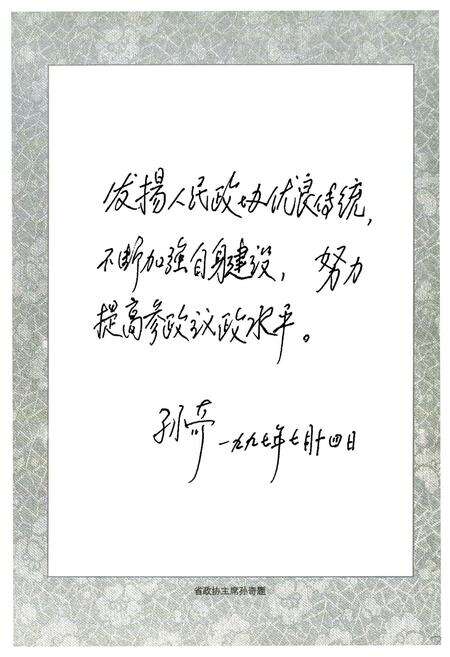 发揚人民政协优良传统，
不断加强自身建设， 努力
提高参政议政水平。
孙奇 一九九七年七月十四日
省政协主席孙奇题